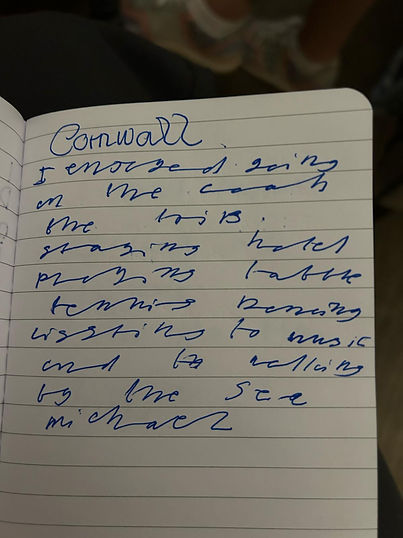 Cornwall
I enoyed going
on the coach
the trip.
staying hotel
playing table
tennis Dancing
lissting to music
and to walking
by the sea
michael